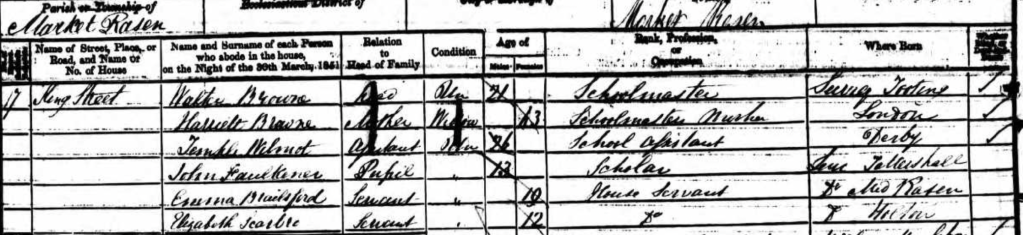 Parish or Township of Ecclesiastical District of City or Borough of
Market Rasen Market Rasen
Name of Street, Place, or Road, and Name or No. of House Name and Surname of each Person who abode in the house, on the Night of the 30th March, 1851 Relation to Head of Family Condition Age of Males Females Rank, Profession, or Occupation Where Born
17 King Street Walter Browne Head 21 Schoolmaster Surrey Tooting
Harriett Browne Mother Widow Schoolmasters London
Temple Wilmot Assistant 26 School Assistant Derby
John Faulkener Pupil " 13 Scholar Tattershall
Emma Brailsford Servant " House Servant Do Mid Rasen
Elizabeth Servant " 12 Do Do